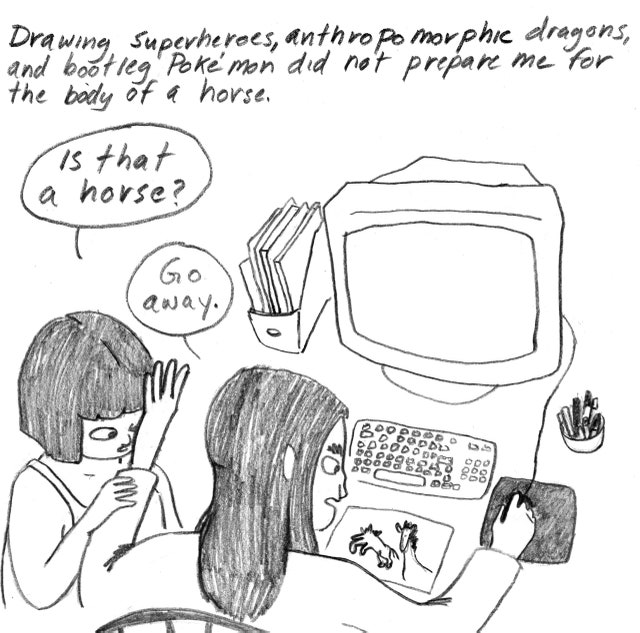 Drawing superheroes, anthropomorphic dragons,
and bootleg Pokémon did not prepare me for
the body of a horse.
Is that
a horse?
Go
away.